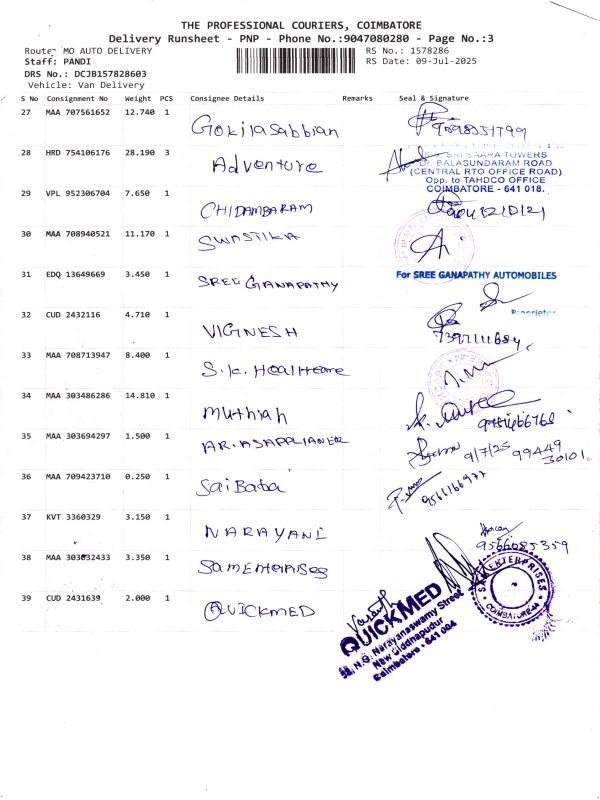 THE PROFESSIONAL COURIERS, COIMBATORE
Delivery Runsheet - PNP - Phone No.:9047080280 - Page No.:3
Route: MO AUTO DELIVERY RS No.: 1578286
Staff: PANDI RS Date: 09-Jul-2025
DRS No.: DCJB157828603
Vehicle: Van Delivery
S No Consignment No Weight PCS Consignee Details Remarks Seal & Signature
27 MAA 707561652 12.740 1 Gokilasabbian
28 HRD 754106176 28.190 3 Adventure
SRI SAARA TOWERS
Dr. BALASUNDARAM ROAD
(CENTRAL RTO OFFICE ROAD)
Opp. to TAHDCO OFFICE
COIMBATORE - 641 018.
29 VPL 952306704 7.650 1 CHIDAMBARAM
30 MAA 708940521 11.170 1 SWASTIKA
31 EDQ 13649669 3.450 1 SREE GANAPATHY For SREE GANAPATHY AUTOMOBILES
Proprietor
32 CUD 2432116 4.710 1 VIGINESH
33 MAA 708713947 8.400 1 S.K. HEALTHCARE
34 MAA 303486286 14.810 1 Muthiah
35 MAA 303694297 1.500 1 9/7/25 99449
30101
36 MAA 709423710 0.250 1 SaiBaba 9566166977
37 KVT 3360329 3.150 1 NARAYANI
9566085359
38 MAA 303032433 3.350 1
ENTERPRISES
COIMBATORE
39 CUD 2431639 2.000 1 QUICKMED
Vasanth
QUICKMED
N.G. Narayanaswamy Street
New Siddhapudur
Coimbatore - 641 004